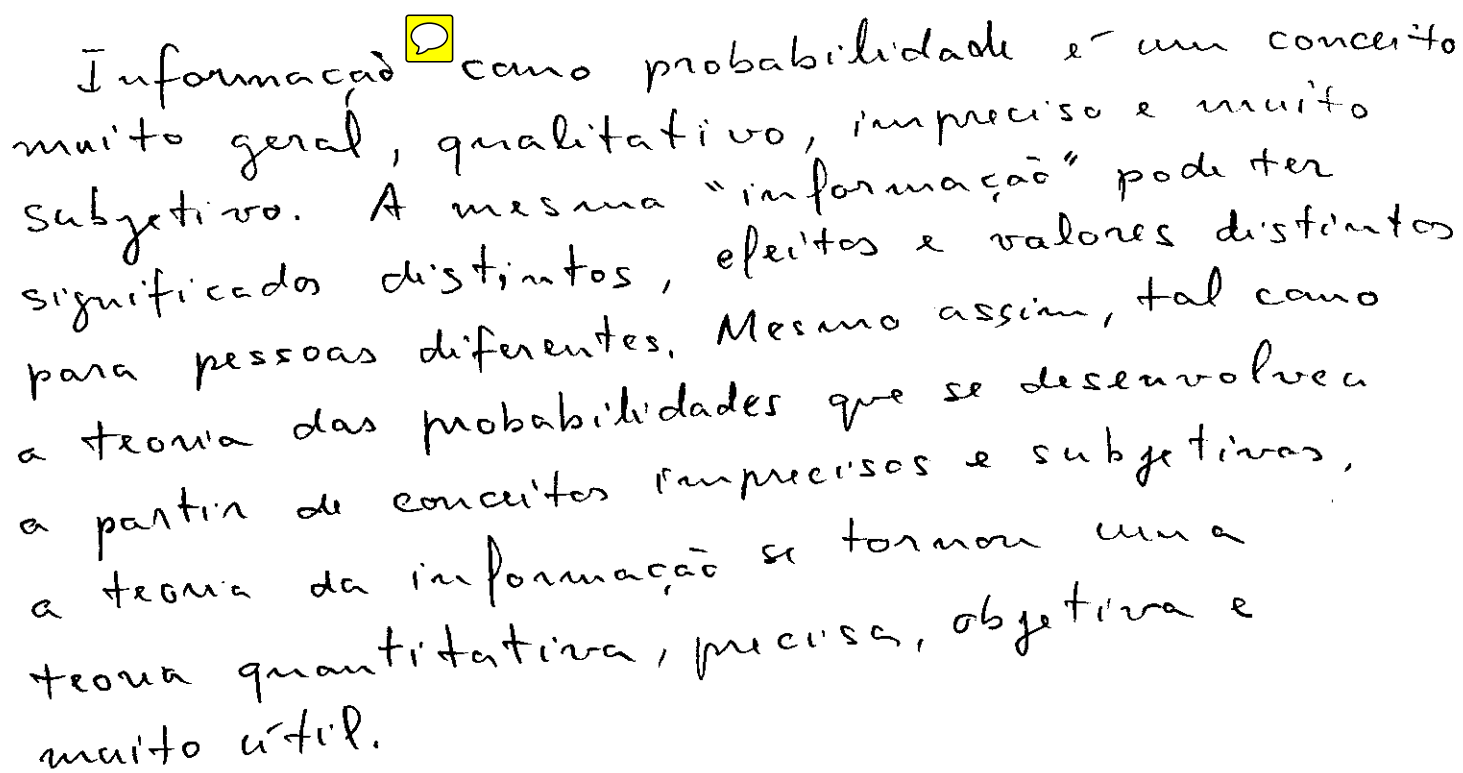 Informação como probabilidade é um conceito
muito geral, qualitativo, impreciso e muito
subjetivo. A mesma "informação" pode ter
significados distintos, efeitos e valores distintos
para pessoas diferentes. Mesmo assim, tal como
a teoria das probabilidades que se desenvolveu
a partir de conceitos imprecisos e subjetivos,
a teoria da informação se tornou uma
teoria quantitativa, precisa, objetiva e
muito útil.